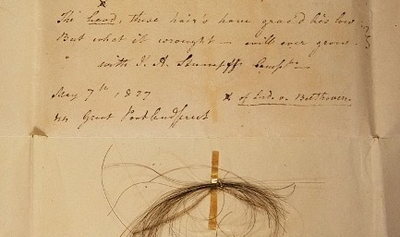 x
The head, these hair's have grac'd lies low
But what it wrought — will ever grow.
with J. A. Stumpff Compts
May 7th, 1827 x of Lud. v. Beethoven
44 Great Portland street